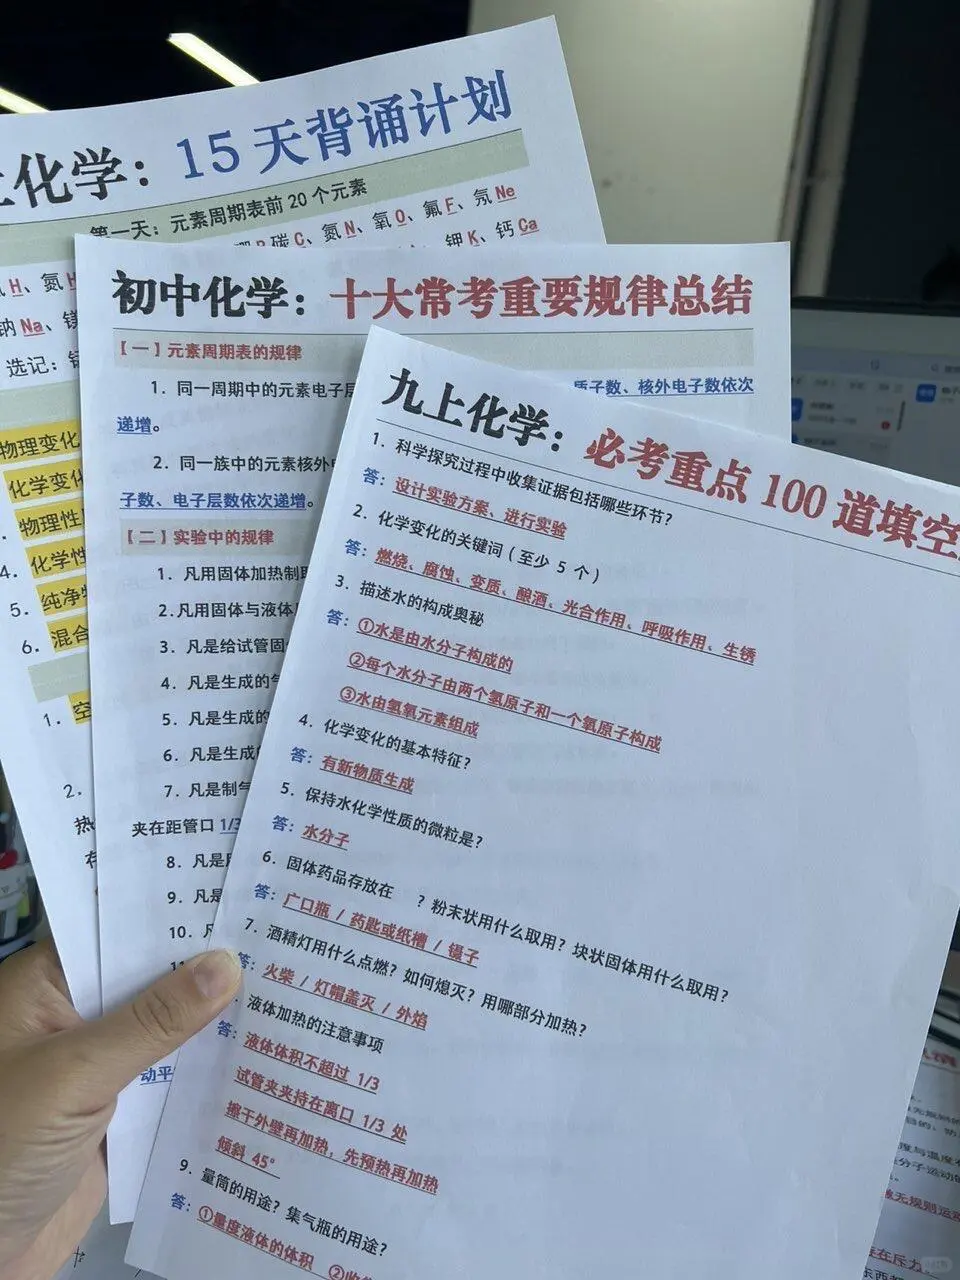 上化学：15天背诵计划
第一天：元素周期表前20个元素
碳C、氮N、氧O、氟F、氖Ne
H、氮
钾K、钙Ca
钠Na、镁
选记：
物理变化
化学变化
物理性
4. 化学性
5. 纯净物
6. 混合
1. 空
2.
热
初中化学：十大常考重要规律总结
【一】元素周期表的规律
1. 同一周期中的元素电子层
质子数、核外电子数依次
递增。
2. 同一族中的元素核外电
子数、电子层数依次递增。
【二】实验中的规律
1. 凡用固体加热制取
2. 凡用固体与液体
3. 凡是给试管固
4. 凡是生成的气
5. 凡是生成的
6. 凡是生成
7. 凡是制气
夹在距管口1/3
8. 凡是
9. 凡是
10. 凡
11
动平
九上化学：必考重点100道填空
1. 科学探究过程中收集证据包括哪些环节？
答：设计实验方案、进行实验
2. 化学变化的关键词（至少 5 个）
答：燃烧、腐蚀、变质、酿酒、光合作用、呼吸作用、生锈
3. 描述水的构成奥秘
答：①水是由水分子构成的
②每个水分子由两个氢原子和一个氧原子构成
③水由氢氧元素组成
4. 化学变化的基本特征？
答：有新物质生成
5. 保持水化学性质的微粒是？
答：水分子
6. 固体药品存放在 ？粉末状用什么取用？块状固体用什么取用？
答：广口瓶 / 药匙或纸槽 / 镊子
7. 酒精灯用什么点燃？如何熄灭？用哪部分加热？
答：火柴 / 灯帽盖灭 / 外焰
液体加热的注意事项
答：液体体积不超过 1/3
试管夹夹持在离口 1/3 处
擦干外壁再加热，先预热再加热
倾斜 45°
9. 量筒的用途？集气瓶的用途？
答：①量度液体的体积 ②收